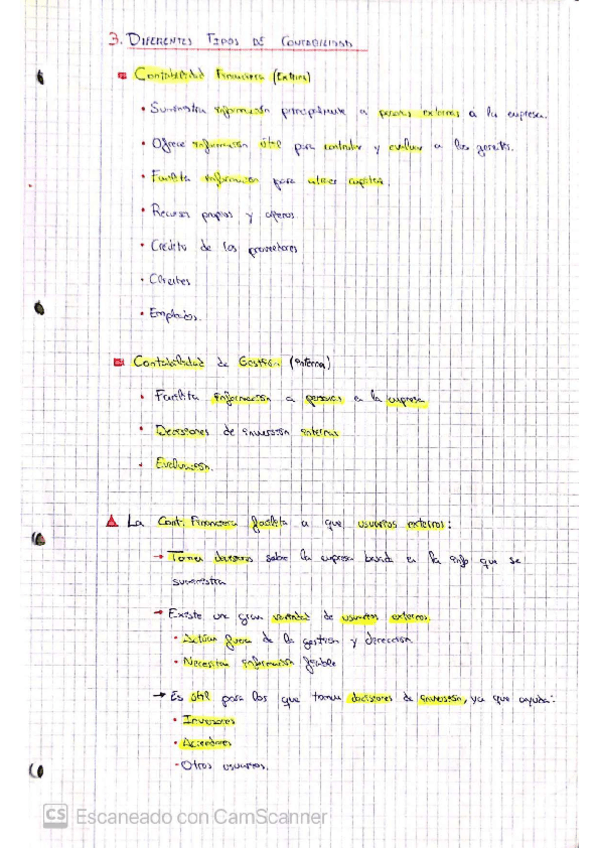 3. DIFERENTES TIPOS DE CONTABILIDAD
Contabilidad Financiera (Externa)
• Suministra información principalmente a personas externas a la empresa.
• Ofrece información útil para controlar y evaluar a los gerentes.
• Facilita información para obtener capital.
• Recursos propios y ajenos
• Crédito de los proveedores
• Clientes
• Empleados.
Contabilidad de Gestión (interna)
• Facilita información a personas en la empresa
• Decisiones de inversión internas
• Evaluación.
La Cont. Financiera facilita a que usuarios externos:
→ Tomen decisiones sobre la empresa basada en la info que se
suministra
→ Existe una gran variedad de usuarios externos.
• Actúan fuera de la gestión y dirección
• Necesitan información fiable
→ Es útil para los que toman decisiones de inversión, ya que ayuda:
• Inversores
• Acreedores
- Otros usuarios.
CS Escaneado con CamScanner